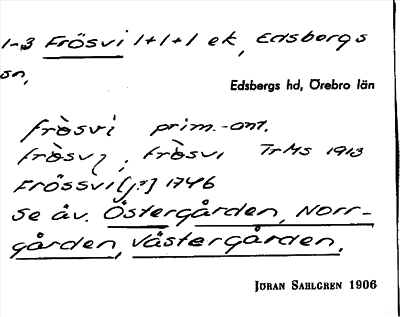 1-3 Frösvi 1+1+1 ek, Edsbergs
sn,
Edsbergs hd, Örebro län
frösvi prim.-ont.
frösvi, frösvi TrMs 1913
Frössvi [j:] 1746
Se äv. Östergården, Norr-
gården, Västergården.
JÖRAN SAHLGREN 1906